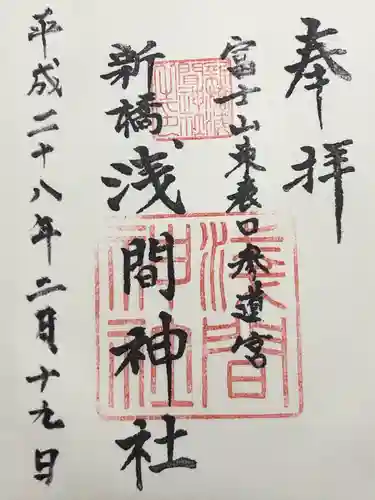 奉拝
富士山東表口参道宮
新橋浅間神社
平成二十八年二月十九日
浅間神社